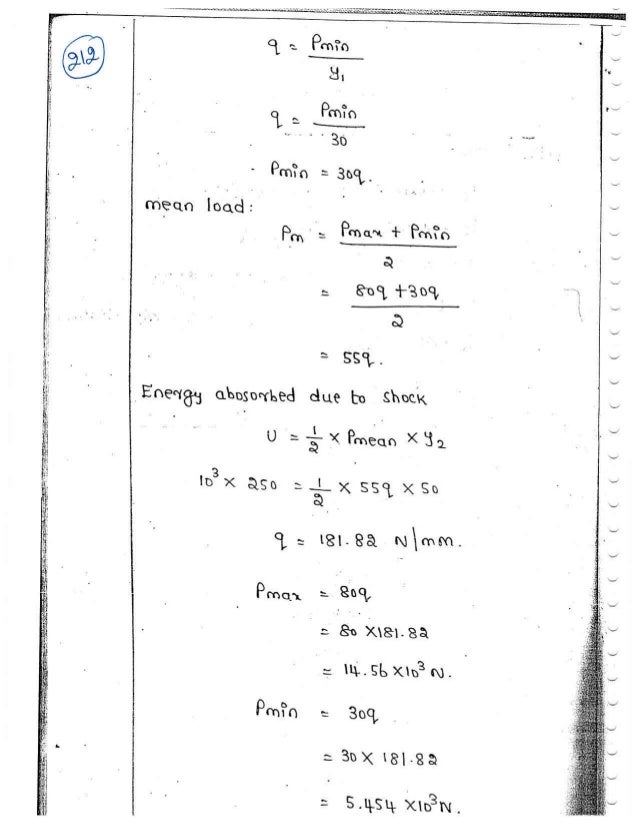 212
q = Pmin / y1
q = Pmin / 30
Pmin = 30q.
mean load:
Pm = Pmax + Pmin / 2
= 80q + 30q / 2
= 55q.
Energy abosorbed due to shock
U = 1/2 × Pmean × y2
10³ × 250 = 1/2 × 55q × 50
q = 181.82 N/mm.
Pmax = 80q
= 80 × 181.82
= 14.56 × 10³ N.
Pmin = 30q
= 30 × 181.82
= 5.454 × 10³ N.